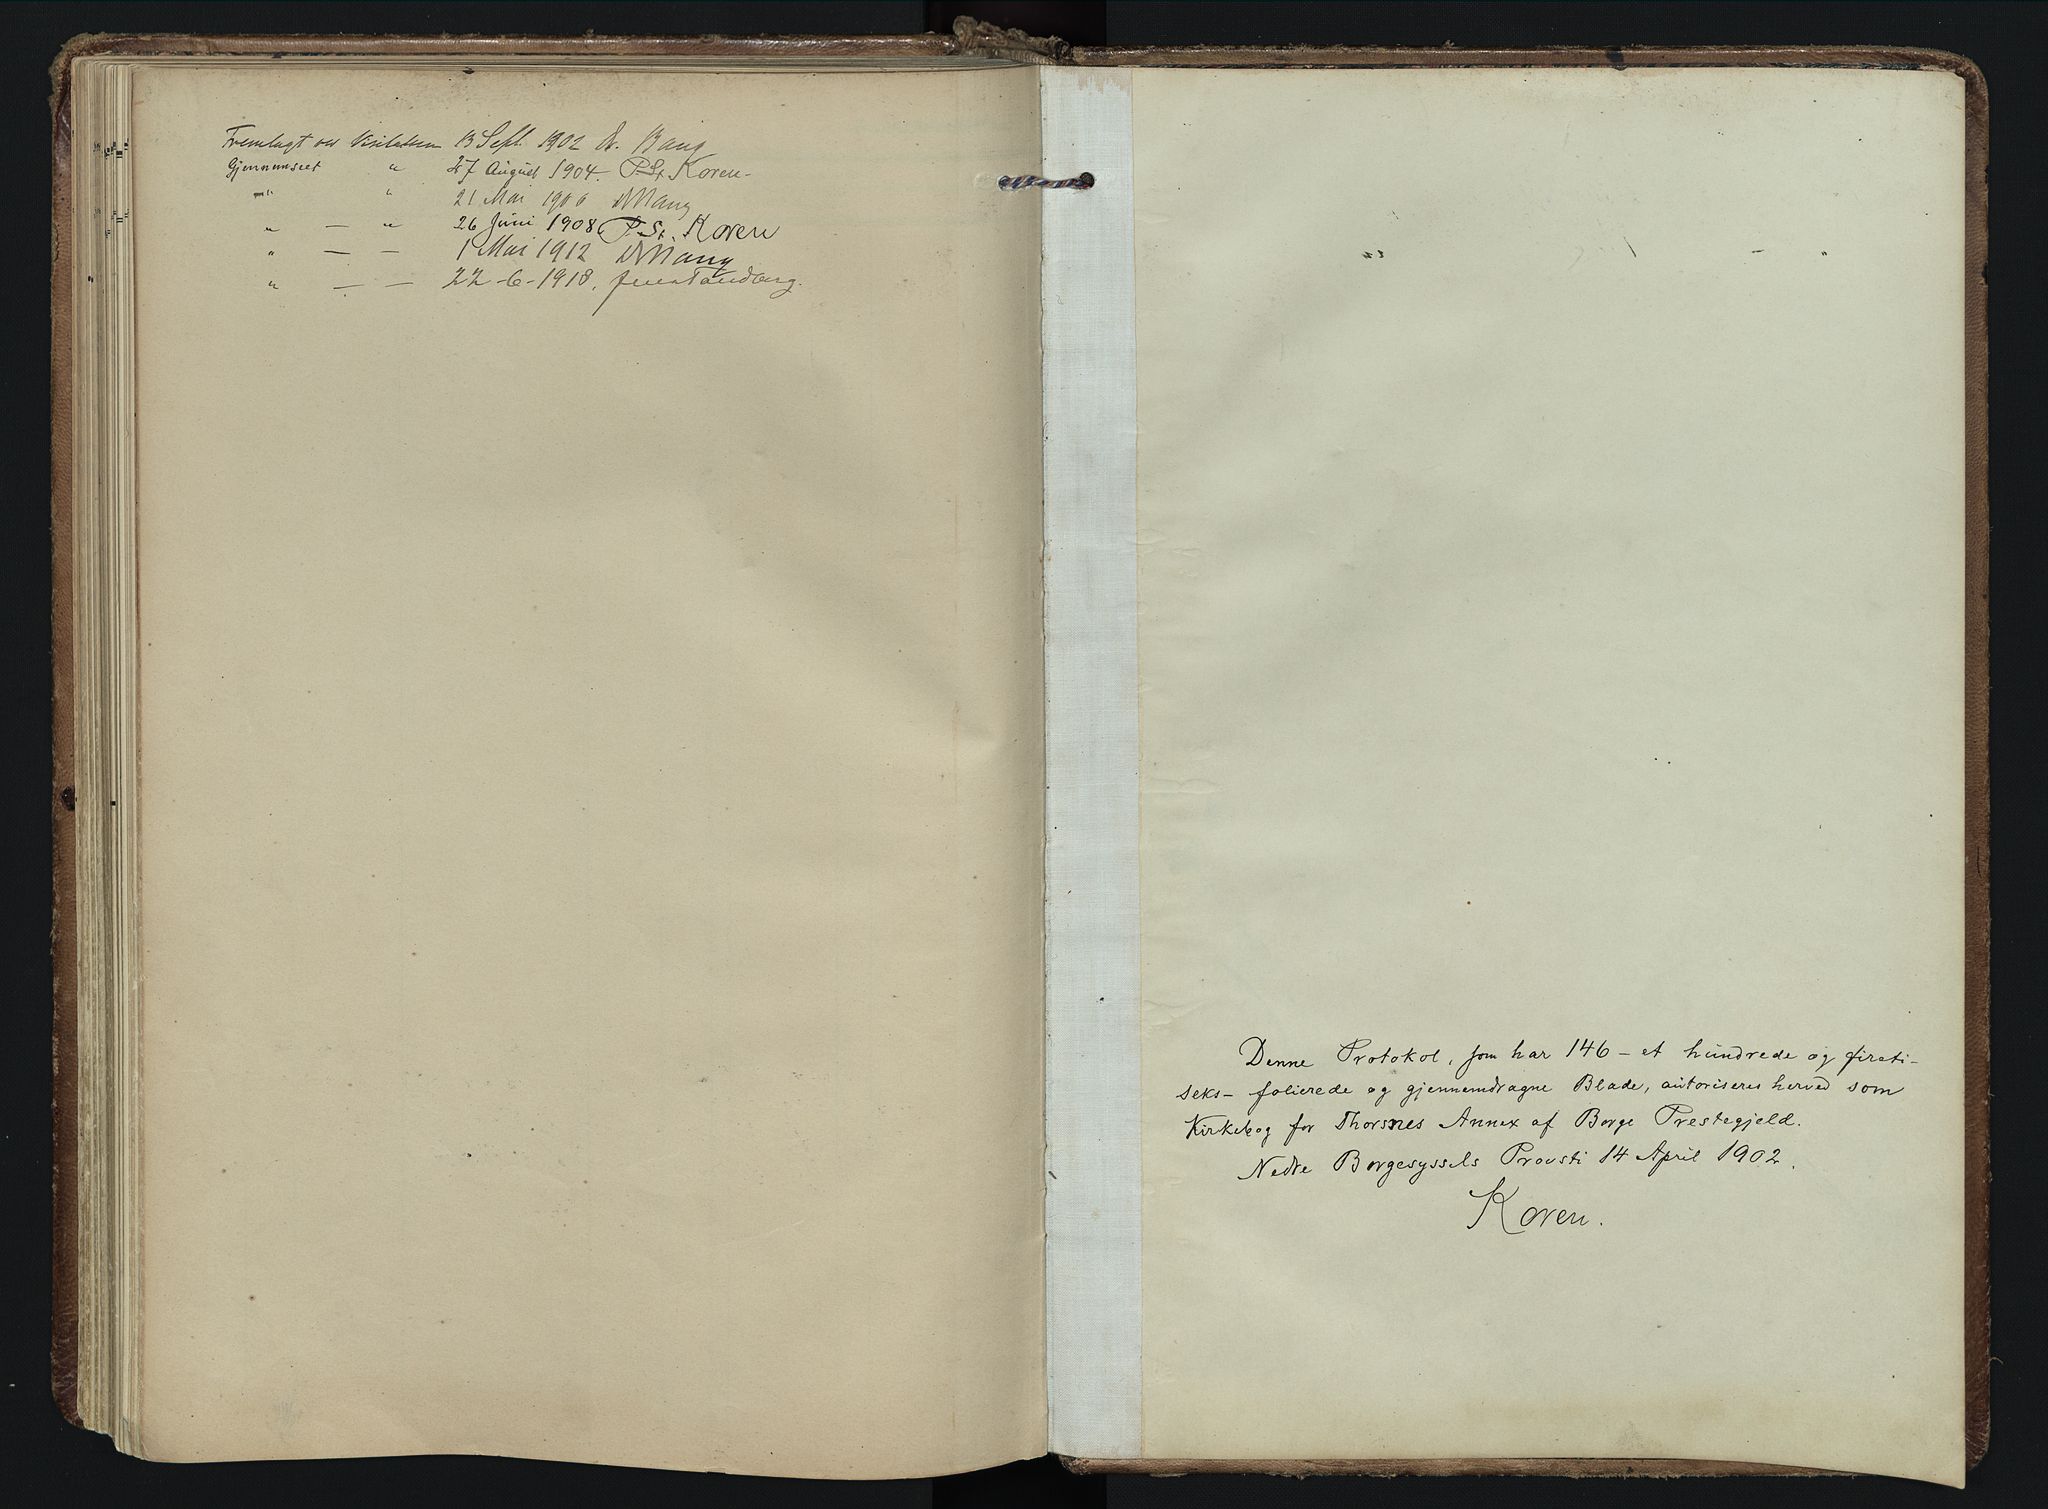 Fremlagt ved Visitatsen 13 Sept. 1902 A. Bang
Gjennemseet " 27 August 1904. P. St. Koren
—"— " 21 Mai 1906 A Bang
" — " 26 Juni 1908 P. St. Koren
" — — 1 Mai 1912 A Bang
" — — 22-6-1918. Jens Tandberg.
Denne Protokol, som har 146 – et hundrede og firati-
seks – folierede og gjennemdragne Blade, autoriseres herved som
Kirkebog for Thorsnes Annex af Borge Prestegjeld.
Nedre Borgesyssels Provsti 14 April 1902.
Koren.